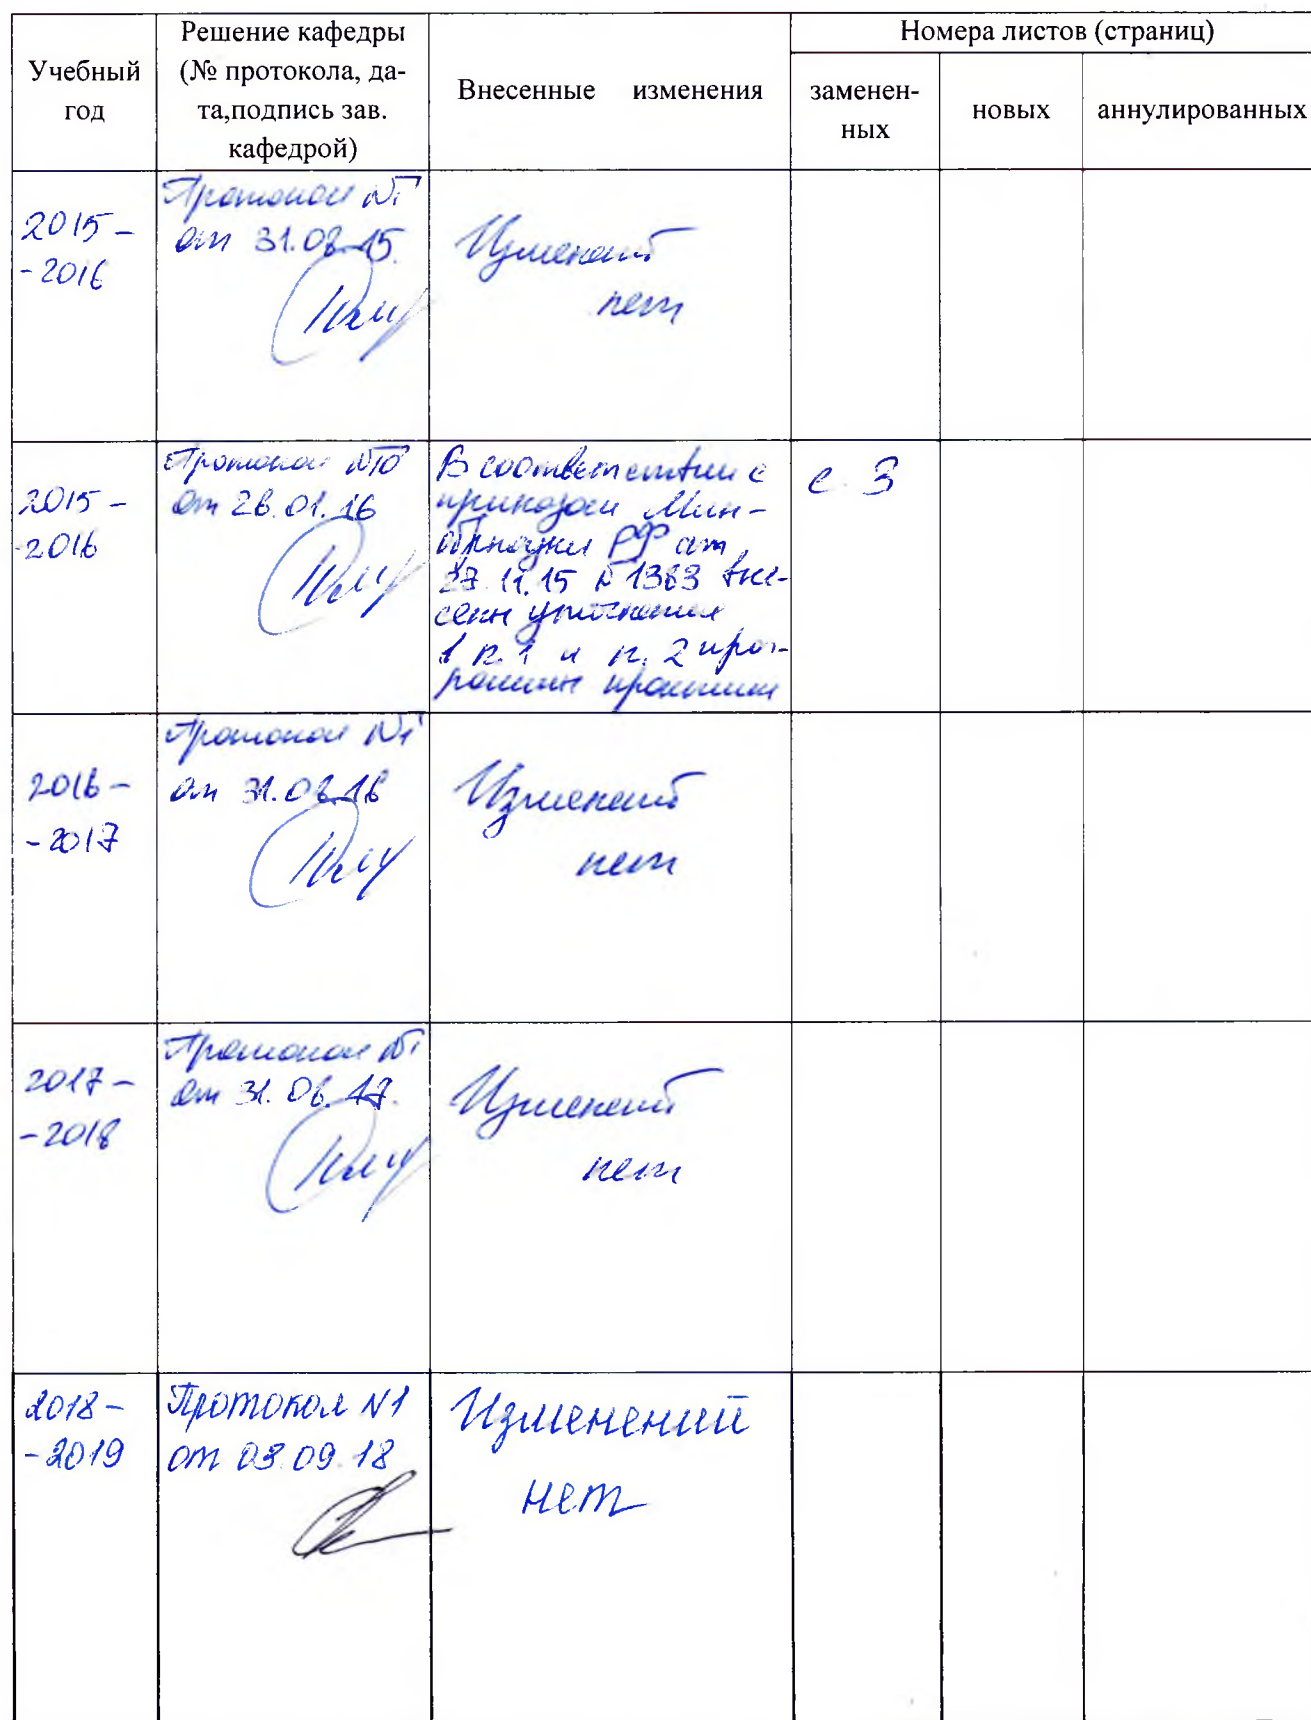 Учебный
год
Решение кафедры
(№ протокола, да-
та,подпись зав.
кафедрой)
Внесенные изменения
Номера листов (страниц)
заменен-
ных
новых
аннулированных
2015 -
- 2016
Протокол №1
от 31.08.15.
Изменений
нет
2015 -
-2016
Протокол №10
от 26.01.16
В соответствии с
приказом Мин-
обрнауки РФ от
27.11.15 № 1383 вне-
сены уточнения
в п.1 и п. 2 прог-
раммы практики
с. 3
2016 -
- 2017
Протокол №1
от 31.08.16
Изменений
нет
2017 -
- 2018
Протокол №1
от 31.08.17.
Изменений
нет
2018 -
- 2019
Протокол №1
от 03.09.18
Изменений
нет